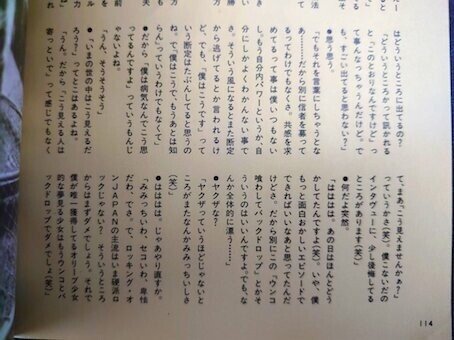 はどういうところに出てるの？
「どういうところかって訊かれる
と『このとおりなんですけど』って
事んなっちゃうんだけど。で
も、すごい出てると思うけど」
●思う思う。
「でもそれを言葉にしちゃうとな
あ……だから別に信者を募って
るってわけでもなくさ。共感を求
めてるって事は僕いつもない
し。もう自分内パワーというか、自
分にしかよくわかんない事で
さ。そういう風になるとまた断定
から逃げてるとか言われるけ
ど、でも、『僕はこうです』って
いう断定はたぶんしてると思うの
ね。で『僕はこうで、もうあとは知
らん』っていうわけでもなくて」
●だから『僕は病気なんでこう見え
てるんですよ』っていうもんじ
ゃないよね。
「うん、そうそうそう」
●『いまの世の中はこう見えるだ
ろう？』ってとこはあるよね。
「うん。だから『こう見える人は
寄っといで』って感じでもなく
て、まあ、こう見えませんかぁ？』
っていうかさ（笑）。僕こないだの
インタヴューに、少し後悔してる
ところがあります（笑）」
●何だよ突然。
「はははは。あの日はほんとどう
かしてたんですよ（笑）。いや、僕
もっと面白おかしいエピソードで
できればいいなあと思ってたんだ
けどさ。だから別にこの『ウンコ
喰わしてバックドロップ』とかそ
ういうのはいいんですよ。でも、な
んか全体的に漂う……」
●ヤクザな？
「ヤクザっていうほどじゃないと
ころがまたなんかみみっちいしさ
（笑）」
●はははは。じゃあやり直すか。
「みみっちいわ、セコいわ、卑怯
だわ、でさ。で、ロッキング・オ
ンＪＡＰＡＮの主流はいま硬派ロ
ックじゃない？　そういうところ
からはまずダメでしょう。それで
僕が唯一獲得してるオリーブ少女
的な夢見る少女はもうウンコとバ
ックドロップでダメでしょ（笑）
114